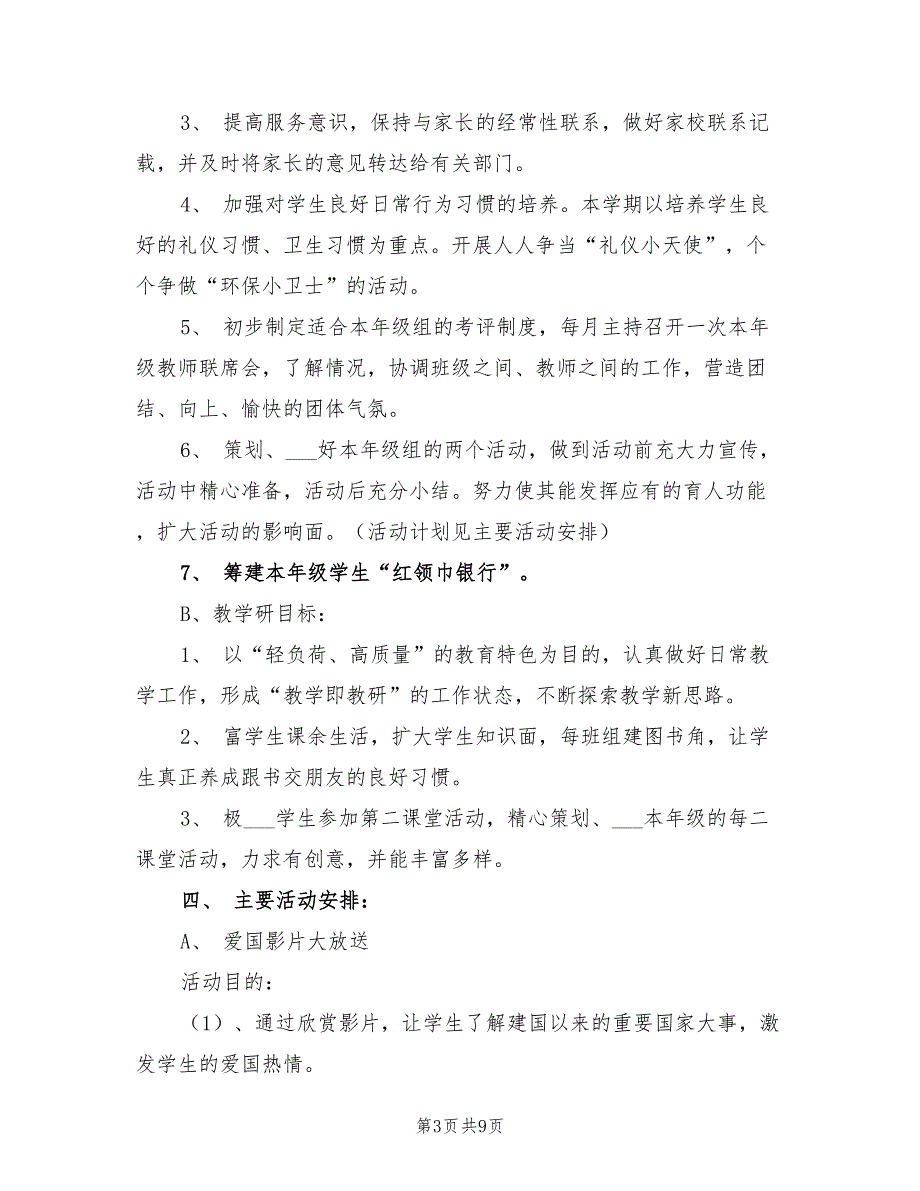 3、 提高服务意识，保持与家长的经常性联系，做好家校联系记
载，并及时将家长的意见转达给有关部门。
4、 加强对学生良好日常行为习惯的培养。本学期以培养学生良
好的礼仪习惯、卫生习惯为重点。开展人人争当“礼仪小天使”，个
个争做“环保小卫士”的活动。
5、 初步制定适合本年级组的考评制度，每月主持召开一次本年
级教师联席会，了解情况，协调班级之间、教师之间的工作，营造团
结、向上、愉快的团体气氛。
6、 策划、___好本年级组的两个活动，做到活动前充大力宣传，
活动中精心准备，活动后充分小结。努力使其能发挥应有的育人功能
，扩大活动的影响面。（活动计划见主要活动安排）
7、 筹建本年级学生“红领巾银行”。
B、教学研目标：
1、 以“轻负荷、高质量”的教育特色为目的，认真做好日常教
学工作，形成“教学即教研”的工作状态，不断探索教学新思路。
2、 富学生课余生活，扩大学生知识面，每班组建图书角，让学
生真正养成跟书交朋友的良好习惯。
3、 极___学生参加第二课堂活动，精心策划、___本年级的每二
课堂活动，力求有创意，并能丰富多样。
四、 主要活动安排：
A、 爱国影片大放送
活动目的：
（1）、通过欣赏影片，让学生了解建国以来的重要国家大事，激
发学生的爱国热情。
第3页共9页